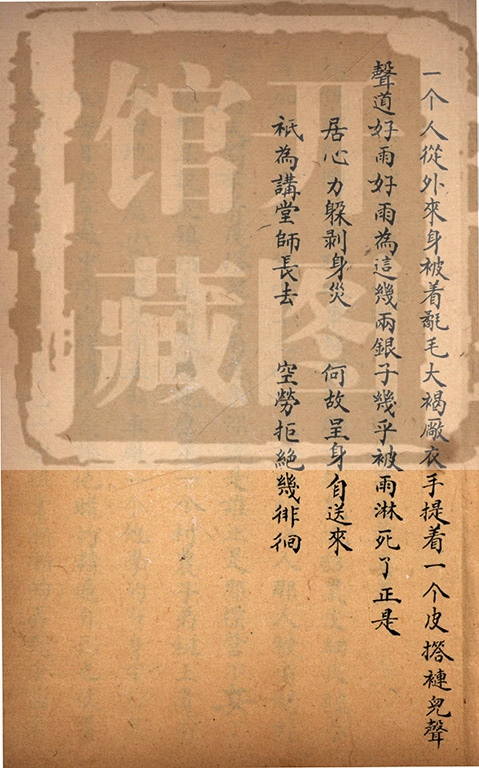 一个人從外來身被着氊毛大褐厰衣手提着一个皮撘褳児聲
聲道好雨好雨為這幾兩銀子幾乎被雨淋死了正是
居心力躲剥身災　何故呈身自送來
祇為講堂師長去　空勞拒絶幾徘徊
开图
馆藏